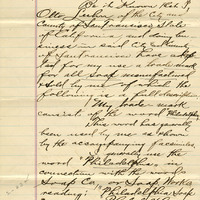 Be it Known that I,
Otto Luhn of the City and
County of San Francisco, State
of California, and doing bus-
iness in said City & County
of San Francisco have adopt-
ed for my use a trade mark
for all Soap manufactured
& sold by me of which the
following is a full
My trade mark
consists of the word Philadelphia
This word has generally
been used by me as shown
by the accompanying facsimiles
generally use the
word "Philadelphia" in
connection with the words
Soap Co. or Soap Works
reading: "Philadelphia Soap